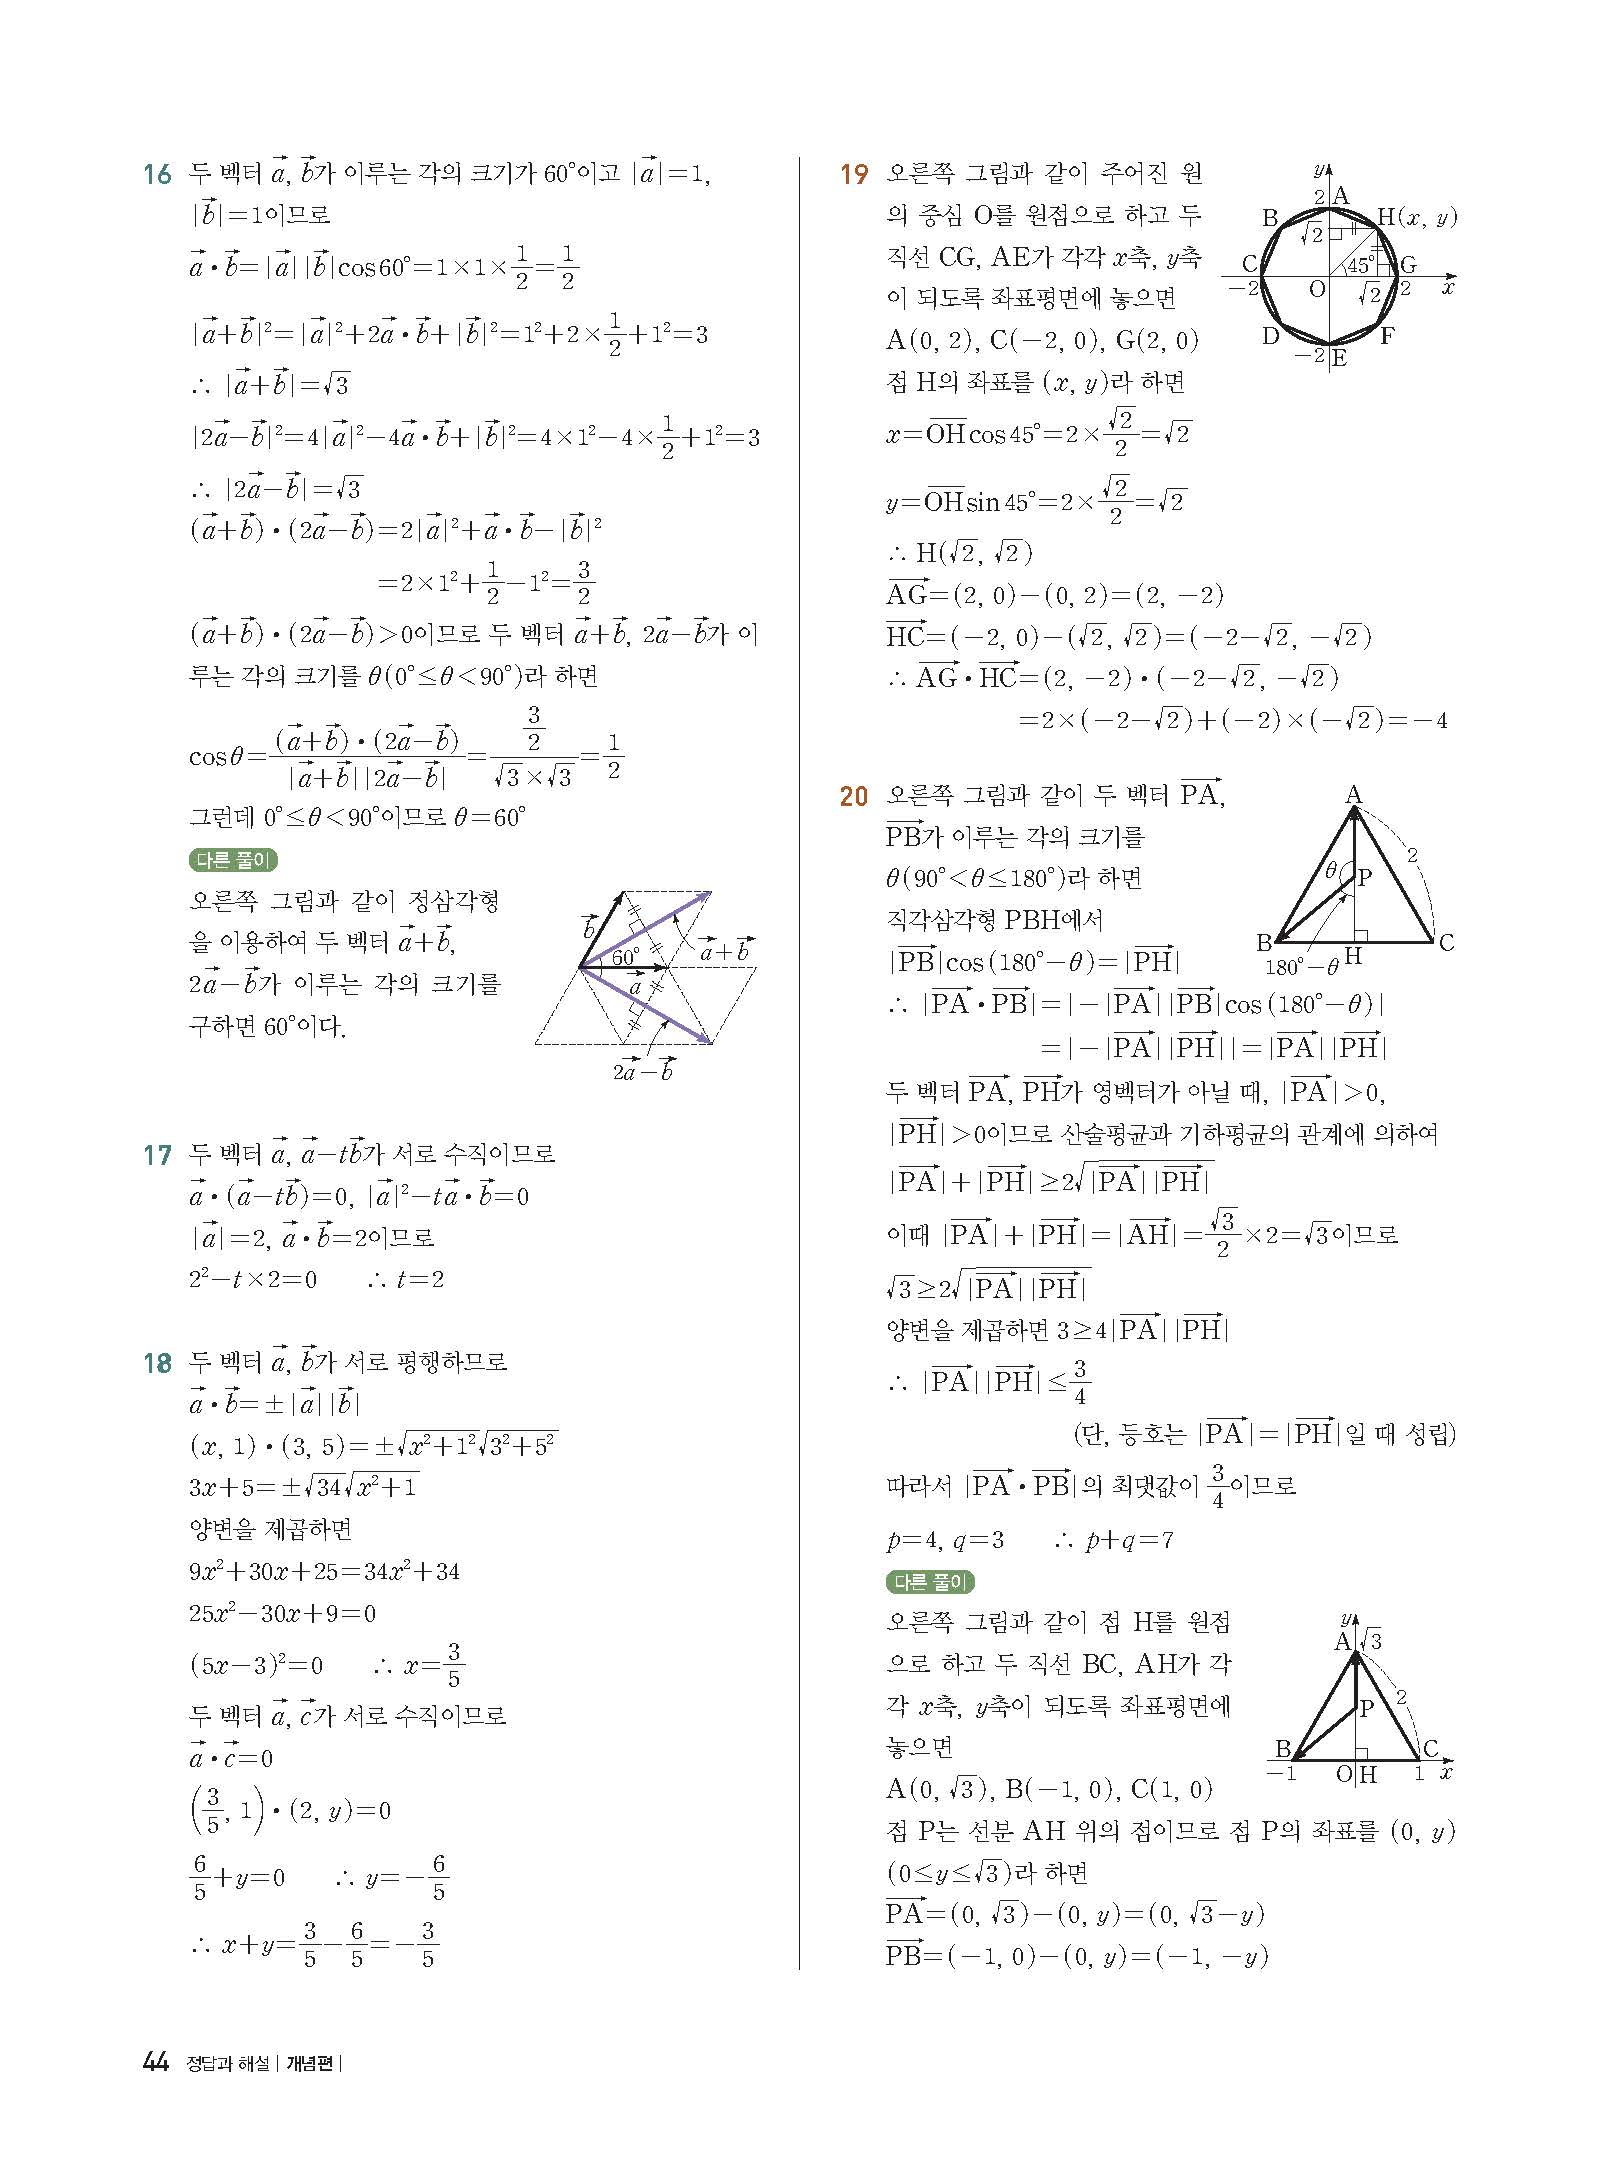 16 두 벡터 $\vec{a}$, $\vec{b}$가 이루는 각의 크기가 60°이고 $|\vec{a}|=1$,
$|\vec{b}|=1$이므로
$\vec{a}\cdot\vec{b}=|\vec{a}||\vec{b}|\cos 60°=1\times1\times\frac{1}{2}=\frac{1}{2}$
$|\vec{a}+\vec{b}|^2=|\vec{a}|^2+2\vec{a}\cdot\vec{b}+|\vec{b}|^2=1^2+2\times\frac{1}{2}+1^2=3$
∴ $|\vec{a}+\vec{b}|=\sqrt{3}$
$|2\vec{a}-\vec{b}|^2=4|\vec{a}|^2-4\vec{a}\cdot\vec{b}+|\vec{b}|^2=4\times1^2-4\times\frac{1}{2}+1^2=3$
∴ $|2\vec{a}-\vec{b}|=\sqrt{3}$
$(\vec{a}+\vec{b})\cdot(2\vec{a}-\vec{b})=2|\vec{a}|^2+\vec{a}\cdot\vec{b}-|\vec{b}|^2$
$=2\times1^2+\frac{1}{2}-1^2=\frac{3}{2}$
$(\vec{a}+\vec{b})\cdot(2\vec{a}-\vec{b})>0$이므로 두 벡터 $\vec{a}+\vec{b}$, $2\vec{a}-\vec{b}$가 이
루는 각의 크기를 θ(0°≤θ<90°)라 하면
$\cos\theta=\frac{(\vec{a}+\vec{b})\cdot(2\vec{a}-\vec{b})}{|\vec{a}+\vec{b}||2\vec{a}-\vec{b}|}=\frac{\frac{3}{2}}{\sqrt{3}\times\sqrt{3}}=\frac{1}{2}$
그런데 0°≤θ<90°이므로 θ=60°
다른 풀이
오른쪽 그림과 같이 정삼각형
을 이용하여 두 벡터 $\vec{a}+\vec{b}$,
$2\vec{a}-\vec{b}$가 이루는 각의 크기를
구하면 60°이다.
$\vec{b}$
60°
$\vec{a}$
$\vec{a}+\vec{b}$
$2\vec{a}-\vec{b}$
17 두 벡터 $\vec{a}$, $\vec{a}-t\vec{b}$가 서로 수직이므로
$\vec{a}\cdot(\vec{a}-t\vec{b})=0$, $|\vec{a}|^2-t\vec{a}\cdot\vec{b}=0$
$|\vec{a}|=2$, $\vec{a}\cdot\vec{b}=2$이므로
$2^2-t\times2=0$ ∴ $t=2$
18 두 벡터 $\vec{a}$, $\vec{b}$가 서로 평행하므로
$\vec{a}\cdot\vec{b}=\pm|\vec{a}||\vec{b}|$
$(x, 1)\cdot(3, 5)=\pm\sqrt{x^2+1^2}\sqrt{3^2+5^2}$
$3x+5=\pm\sqrt{34}\sqrt{x^2+1}$
양변을 제곱하면
$9x^2+30x+25=34x^2+34$
$25x^2-30x+9=0$
$(5x-3)^2=0$ ∴ $x=\frac{3}{5}$
두 벡터 $\vec{a}$, $\vec{c}$가 서로 수직이므로
$\vec{a}\cdot\vec{c}=0$
$\left(\frac{3}{5}, 1\right)\cdot(2, y)=0$
$\frac{6}{5}+y=0$ ∴ $y=-\frac{6}{5}$
∴ $x+y=\frac{3}{5}-\frac{6}{5}=-\frac{3}{5}$
19 오른쪽 그림과 같이 주어진 원
의 중심 O를 원점으로 하고 두
직선 CG, AE가 각각 x축, y축
이 되도록 좌표평면에 놓으면
A(0, 2), C(−2, 0), G(2, 0)
점 H의 좌표를 (x, y)라 하면
$x=\overline{OH}\cos45°=2\times\frac{\sqrt{2}}{2}=\sqrt{2}$
$y=\overline{OH}\sin45°=2\times\frac{\sqrt{2}}{2}=\sqrt{2}$
∴ $H(\sqrt{2}, \sqrt{2})$
$\overrightarrow{AG}=(2, 0)-(0, 2)=(2, -2)$
$\overrightarrow{HC}=(-2, 0)-(\sqrt{2}, \sqrt{2})=(-2-\sqrt{2}, -\sqrt{2})$
∴ $\overrightarrow{AG}\cdot\overrightarrow{HC}=(2, -2)\cdot(-2-\sqrt{2}, -\sqrt{2})$
$=2\times(-2-\sqrt{2})+(-2)\times(-\sqrt{2})=-4$
y
2 A
B H(x, y)
√2
C 45° G
−2 O √2 2 x
D F
−2 E
20 오른쪽 그림과 같이 두 벡터 $\overrightarrow{PA}$,
$\overrightarrow{PB}$가 이루는 각의 크기를
θ(90°<θ≤180°)라 하면
직각삼각형 PBH에서
$|\overrightarrow{PB}|\cos(180°-\theta)=|\overrightarrow{PH}|$
∴ $|\overrightarrow{PA}\cdot\overrightarrow{PB}|=|-|\overrightarrow{PA}||\overrightarrow{PB}|\cos(180°-\theta)|$
$=|-|\overrightarrow{PA}||\overrightarrow{PH}||=|\overrightarrow{PA}||\overrightarrow{PH}|$
두 벡터 $\overrightarrow{PA}$, $\overrightarrow{PH}$가 영벡터가 아닐 때, $|\overrightarrow{PA}|>0$,
$|\overrightarrow{PH}|>0$이므로 산술평균과 기하평균의 관계에 의하여
$|\overrightarrow{PA}|+|\overrightarrow{PH}|\geq2\sqrt{|\overrightarrow{PA}||\overrightarrow{PH}|}$
이때 $|\overrightarrow{PA}|+|\overrightarrow{PH}|=|\overrightarrow{AH}|=\frac{\sqrt{3}}{2}\times2=\sqrt{3}$이므로
$\sqrt{3}\geq2\sqrt{|\overrightarrow{PA}||\overrightarrow{PH}|}$
양변을 제곱하면 $3\geq4|\overrightarrow{PA}||\overrightarrow{PH}|$
∴ $|\overrightarrow{PA}||\overrightarrow{PH}|\leq\frac{3}{4}$
(단, 등호는 $|\overrightarrow{PA}|=|\overrightarrow{PH}|$일 때 성립)
따라서 $|\overrightarrow{PA}\cdot\overrightarrow{PB}|$의 최댓값이 $\frac{3}{4}$이므로
$p=4$, $q=3$ ∴ $p+q=7$
A
2
θ P
B C
180°−θ H
다른 풀이
오른쪽 그림과 같이 점 H를 원점
으로 하고 두 직선 BC, AH가 각
각 x축, y축이 되도록 좌표평면에
놓으면
A(0, √3), B(−1, 0), C(1, 0)
점 P는 선분 AH 위의 점이므로 점 P의 좌표를 (0, y)
(0≤y≤√3)라 하면
$\overrightarrow{PA}=(0, \sqrt{3})-(0, y)=(0, \sqrt{3}-y)$
$\overrightarrow{PB}=(-1, 0)-(0, y)=(-1, -y)$
y
A √3
2
P
B C
−1 O H 1 x
44 정답과 해설 | 개념편 |